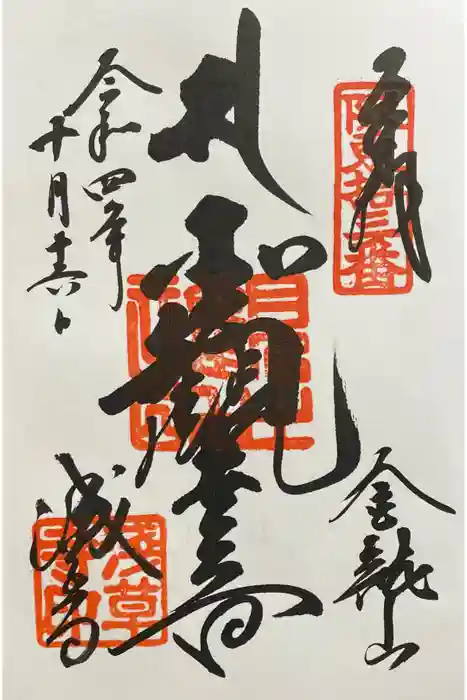 奉拝
阪東拾三番
金龍山
聖観世音
令和四年
十月十六日
浅草寺